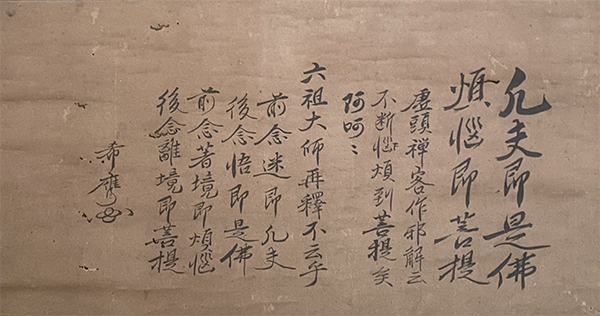 凡夫即是佛
煩惱即菩提
虚頭禅客作邪解云
不断惱煩到菩提矣
阿呵〻
六祖大師再釋不云乎
前念迷即凡夫
後念悟即是佛
前念著境即煩惱
後念離境即菩提
希膺